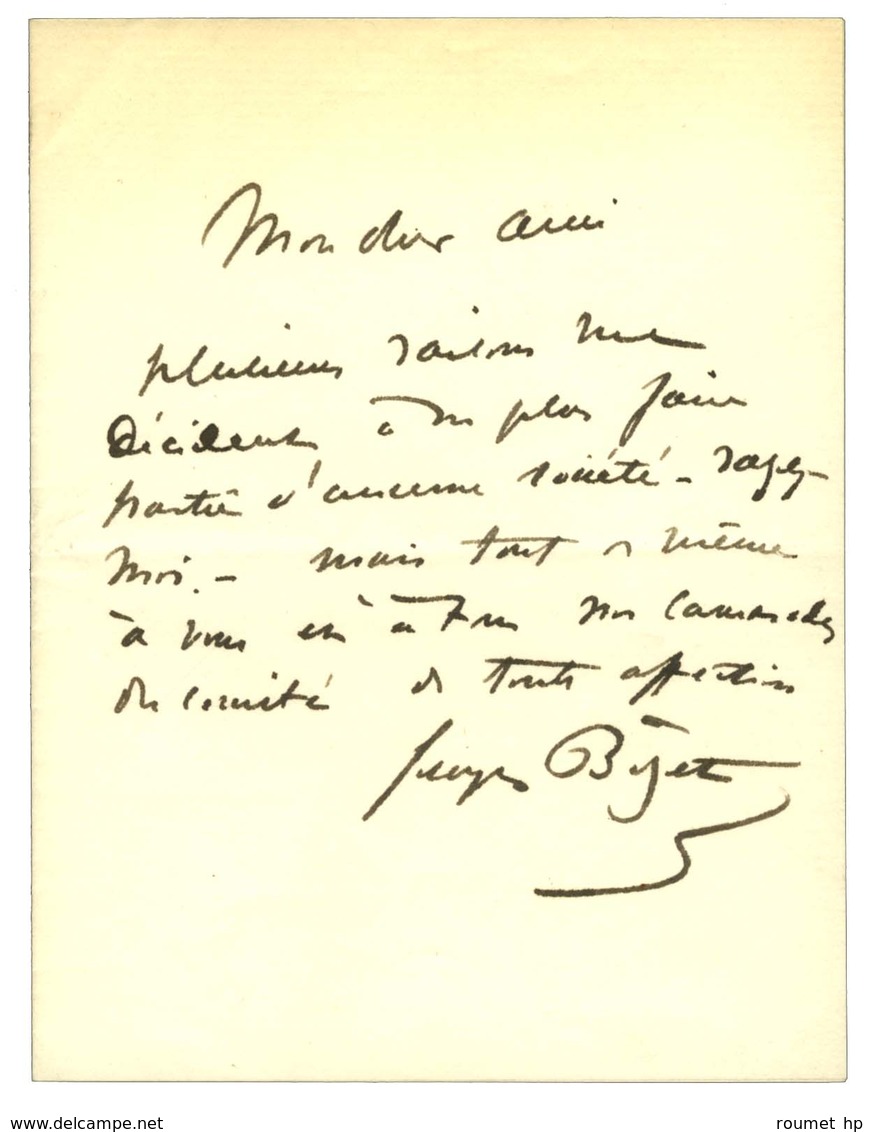 Mon cher ami
plusieurs raisons me
décident à ne plus faire
partie d'aucune société - rayez
moi. - mais tout de même
à vous et à tous nos camarades
du comité de toute affection
Georges Bizet
www.delcampe.net
roumet hp